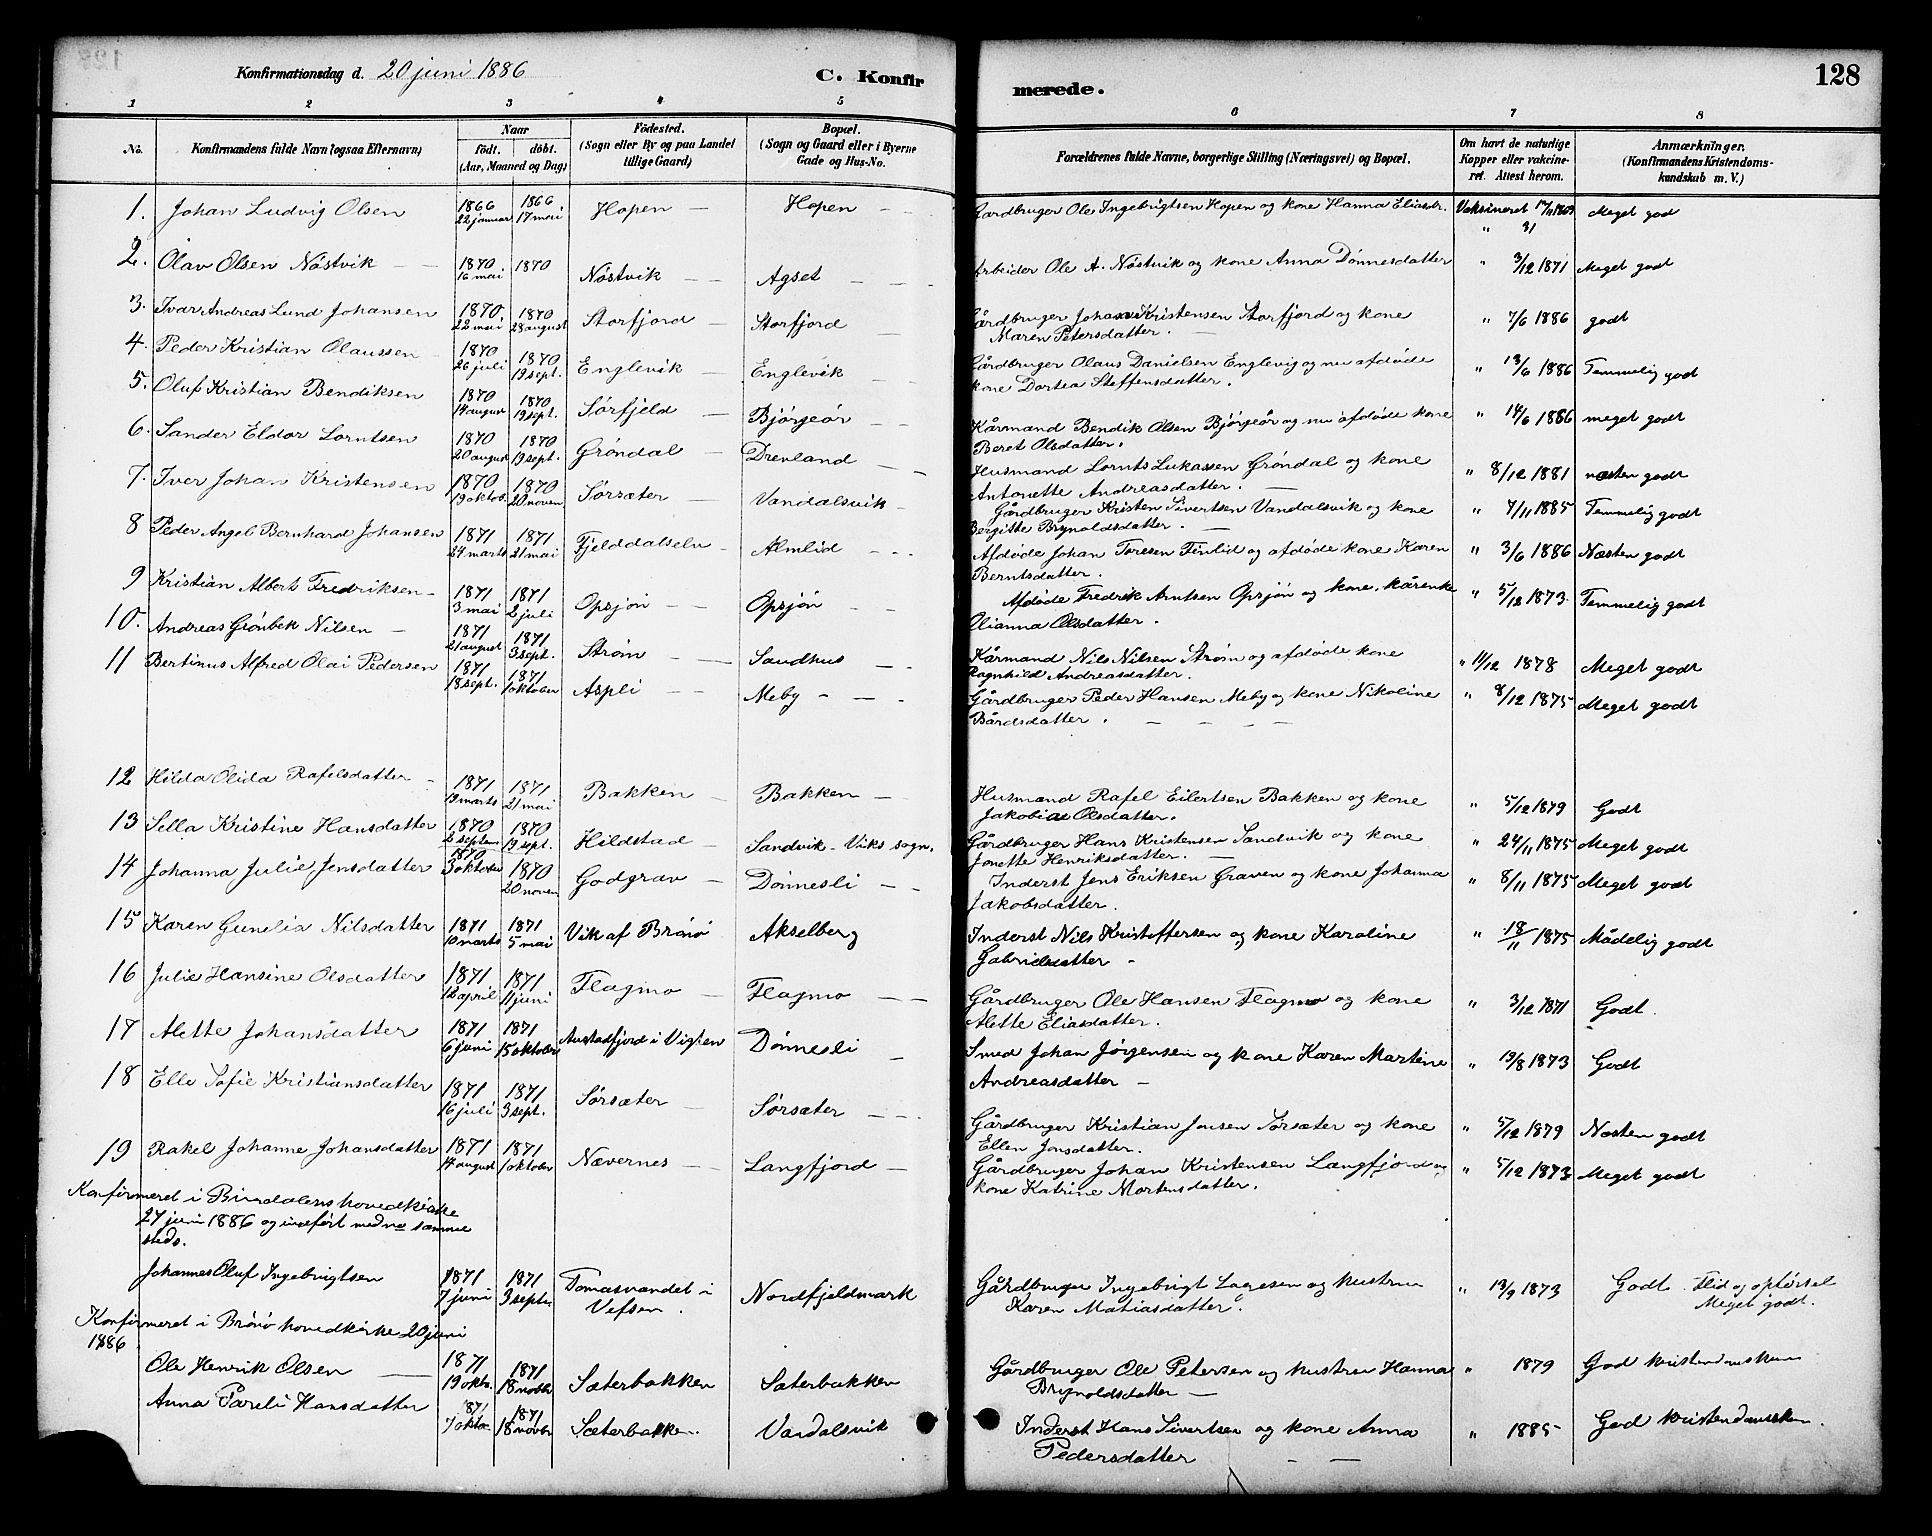 Konfirmationsdag d. 20 juni 1886
C. Konfirmerede.
128
1 2 3 4 5 6 7 8
No.
Konfirmandens fulde Navn (ogsaa Efternavn)
Naar
födt. döbt.
(Aar, Maaned og Dag)
Födested.
(Sogn eller By og paa Landet
tillige Gaard)
Bopæl.
(Sogn og Gaard eller i Byerne
Gade og Hus-No.
Forældrenes fulde Navne, borgerlige Stilling (Næringsvei) og Bopæl.
Om havt de naturlige
Kopper eller vakcine-
ret. Attest herom.
Anmærkninger.
(Konfirmandens Kristendoms-
kundskab m. V.)
1. Johan Ludvig Olsen 1866 22 januar 1866 17 mai Hopen Hopen Gardbruger Ole Ingebrigtsen Hopen og kone Hanna Eliasdr. Vaksineret Meget god
2. Olav Olsen Nöstvik 1870 16 mai 1870 Nöstvik Agset Arbeider Ole A. Nöstvik og kone Anna Dönnesdatter " 3/12 1871 Meget godt
3. Ivar Andreas Lund Johansen 1870 22 mai 1870 28 august Storfjord Storfjord Gårdbruger Johan Kristensen Storfjord og kone
Maren Petersdatter. " 7/6 1886 godt
4. Peder Kristian Olaussen 1870 26 juli 1870 19 sept. Englevik Englevik Gårdbruger Olaus Danielsen Englevig og nu afdöde
kone Dortea Steffensdatter. " 13/6 1886 Temmelig godt
5. Oluf Kristian Bendiksen 1870 14 august 1870 19 sept. Sörfjeld Björgeör Kårmand Bendik Olsen Björgeör og nu afdöde kone
Beret Olsdatter. " 14/6 1886 meget godt
6. Sander Eldor Lorntsen 1870 20 august 1870 19 sept. Gröndal Drevland Husmand Lornts Lukassen Gröndal og kone
Antonette Andreasdatter. " 8/12 1881 næsten godt
7. Iver Johan Kristensen 1870 19 oktob. 1870 20 novem Sörsæter Vandalsvik Gårdbruger Kristen Sivertsen Vandalsvik og kone
Bergitte Brynoldsdatter. " 7/11 1885 Temmelig godt
8 Peder Angel Bernhard Johansen 1871 27 marts 1871 21 mai Fjelddalselv Almlid Afdöde Johan Toresen Finlid og afdöde kone Karen
Berntsdatter. " 3/6 1886 Næsten godt
9 Kristian Albert Fredriksen 1871 3 mai 1871 2 juli Opsjön Opsjön Afdöde Fredrik Arntsen Opsjön og kone, kårenke
Olianna Olsdatter. " 5/12 1873 Temmelig godt
10. Andreas Grönbek Nilsen 1871 21 august 1871 3 sept. Ström Saudhus Kårmand Nils Nilsen Ström og afdöde kone
Ragnhild Andreasdatter. " 11/12 1878 Meget godt
11 Bertinus Alfred Olai Pedersen 1871 18 sept. 1871 1 oktober Aspli Meby Gårdbruger Peder Hansen Meby og kone Nikoline
Bårdsdatter. " 8/12 1875 Meget godt
12 Hilda Olida Rafelsdatter 1871 19 marts 1871 21 mai Bakken Bakken Husmand Rafel Eilertsen Bakken og kone
Jakobine Olsdatter. " 5/12 1879 Godt
13 Sella Kristine Hansdatter 1870 2 septem 1870 19 sept. Hildstad Sandvik - Viks sogn. Gårdbruger Hans Kristensen Sandvik og kone
Jonette Henriksdatter. " 24/11 1875 Meget godt
14 Johanna Julie Jensdatter 1870 3 oktober 1870 20 novem Godgrav Dönnesli Inderst Jens Eriksen Graven og kone Johanna
Jakobsdatter. " 8/11 1875 Meget godt
15 Karen Gunelia Nilsdatter 1871 10 marts 1871 5 mai Vik af Brönö Akselberg Inderst Nils Kristoffersen og kone Karoline
Gabrielsdatter " 18/11 1875 Mådelig godt
16 Julie Hansine Olsdatter 1871 12 april 1871 11 juni Flagmo Flagmo Gårdbruger Ole Hansen Flagmo og kone
Alette Eliasdatter. " 3/12 1871 Godt.
17 Alette Johansdatter 1871 6 juni 1871 15 oktober Austadfjord i Vigten Dönnesli Smed Johan Jörgensen og kone Karen Martine
Andreasdatter " 19/8 1873 Godt
18 Elle Sofie Kristiansdatter 1871 16 juli 1871 3 sept. Sörsæter Sörsæter Gårdbruger Kristian Jensen Sörsæter og kone
Ellen Jonsdatter. " 5/12 1879 Næsten godt
19 Rakel Johanne Johansdatter 1871 14 august 1871 1 oktober Nævernes Langfjord Gårdbruger Johan Kristensen Langfjord og
kone Katrine Mortensdatter. " 5/12 1873 Meget godt
Konfirmeret i Bindalens hovedkirke
27 juni 1886 og indfört med no samme
steds.
Johannes Oluf Ingebrigtsen 1871 7 juni 1871 3 septr. Tomasvandet i
Vefsen. Nordfjeldmark Gårdbruger Ingebrigt Lagesen og hustru
Karen Matiasdatter. " 13/9 1873 Godt. Flid og opförsel
Meget godt.
Konfirmeret i Brönö hovedkirke 20 juni
1886.
Ole Henrik Olsen 1871 19 oktb. 1871 18 novbr Sæterbakken Sæterbakken Gårdbruger Ole Petersen og hustru Hanna
Brynoldsdatter " 1879 God kristendomskun
Anna Pareli Hansdatter 1871 7 oktbr 1871 18 novbr Sæterbakken. Vandalsvik Inderst Hans Sivertsen og kone Anna
Pedersdatter " 1885 God kristendomskun.